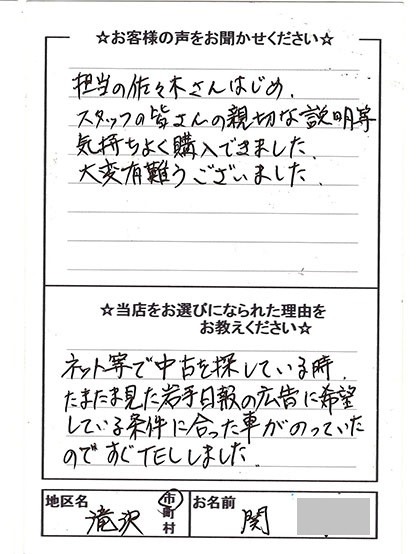 ☆お客様の声をお聞かせください☆
担当の佐々木さんはじめ、
スタッフの皆さんの親切な説明等
気持ちよく購入できました。
大変有難うございました。
☆当店をお選びになられた理由を
お教えください☆
ネット等で中古を探している時、
たまたま見た岩手日報の広告に希望
している条件に合った車がのっていた
のですぐTELしました。
地区名 滝沢 市町村 お名前 関